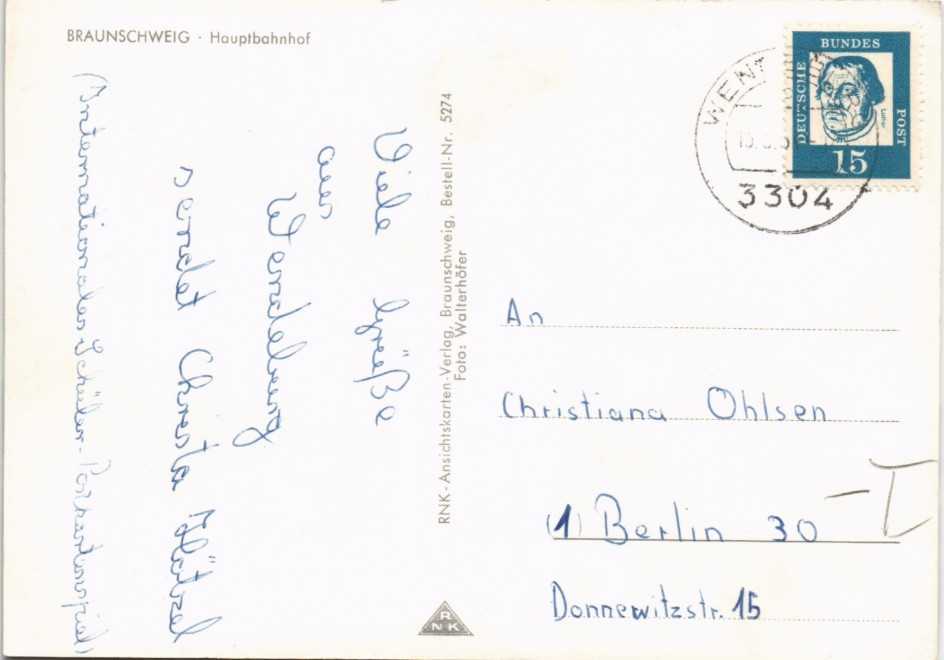 BRAUNSCHWEIG · Hauptbahnhof
Viele Grüße
aus
Wendeburg
sendet Christa Plötzel
(Internationales Schüler-Postkartenspiel)
RNK-Ansichtskarten-Verlag, Braunschweig, Bestell-Nr. 5274
Foto: Walterhöfer
RNK
DEUTSCHE
BUNDES
POST
Luther
15
3304
An
Christiana Ohlsen
(1) Berlin 30
Dennewitzstr. 15